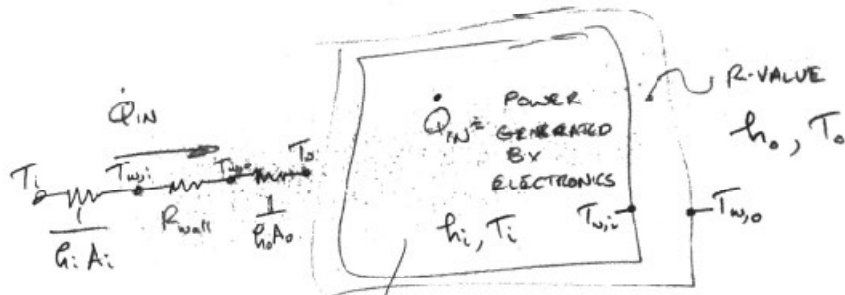 Q̇IN
Ti
Tw,i
Tw,o
To
1/hiAi
Rwall
1/hoAo
Q̇IN = POWER
GENERATED
BY
ELECTRONICS
hi, Ti
Tw,i
Tw,o
R-VALUE
ho, To